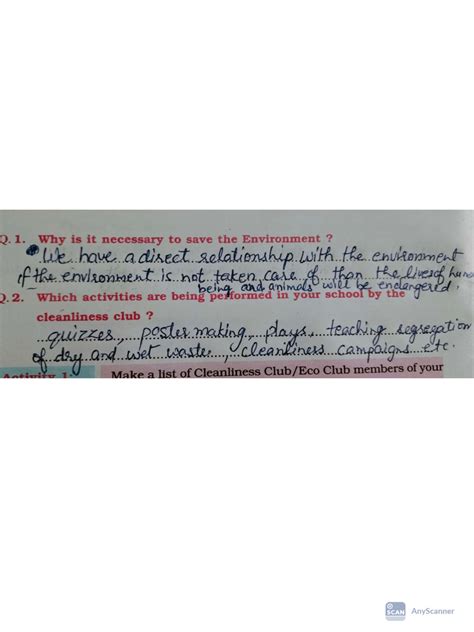 Q. 1. Why is it necessary to save the Environment ?
We have a direct relationship with the environment
if the environment is not taken care of than the lives of human
being and animals will be endangered.
Q. 2. Which activities are being performed in your school by the
cleanliness club ?
quizzes, poster making, plays, teaching segregation
of dry and wet waster, cleanliness campaigns etc.
Activity 1
Make a list of Cleanliness Club/Eco Club members of your
SCAN AnyScanner